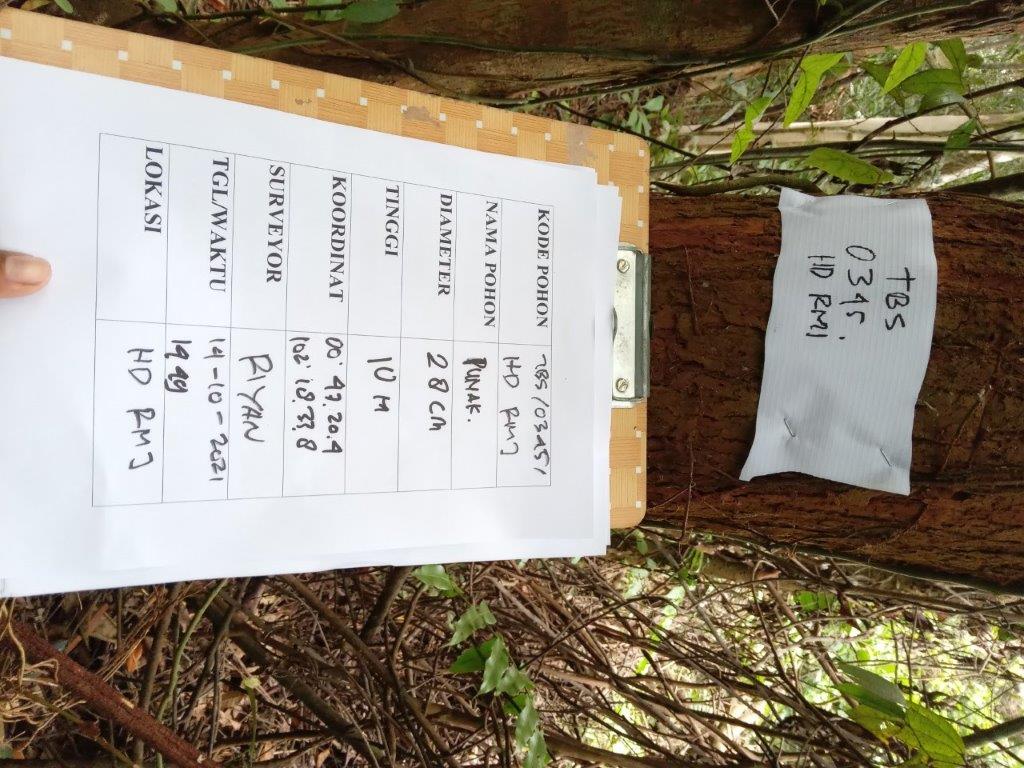 KODE POHON TBS/0345/
HD RMJ
NAMA POHON PUNAK.
DIAMETER 28 CM
TINGGI 10 M
KOORDINAT 00° 47. 20.9
102° 18. 37. 8
SURVEYOR RIYAN
TGL/WAKTU 14-10-2021
1949
LOKASI HD RMJ
TBS
0345.
HD RMJ